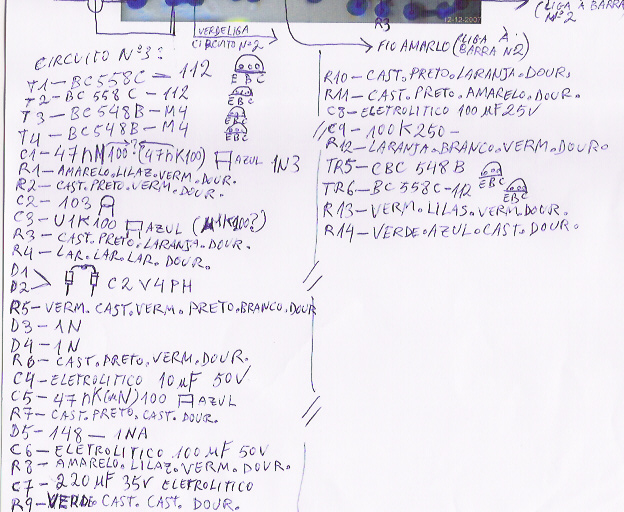 R3
12-12-2007
(LIGA À BARRA
Nº2
VERDE LIGA
CIRCUITO Nº2
FIO AMARLO (LIGA À
BARRA Nº2)
CIRCUITO Nº3:
T1-BC558C-112
EBC
T2-BC558C-112
EBC
T3-BC548B-M4
EBC
T4-BC548B-M4
EBC
C1-47nM100? (47nK100) AZUL 1N3
R1-AMARELO.LILAZ.VERM.DOUR.
R2-CAST.PRETO.VERM.DOUR.
C2-103
C3-U1K100 AZUL (µ1K100?)
R3-CAST.PRETO.LARANJA.DOUR.
R4-LAR.LAR.LAR.DOUR.
D1
D2 > C2V4PH
R5-VERM.CAST.VERM.PRETO.BRANCO.DOUR
D3-1N
D4-1N
R6-CAST.PRETO.VERM.DOUR.
C4-ELETROLITICO 10µF 50V
C5-47nK(µN)100 AZUL
R7-CAST.PRETO.CAST.DOUR.
D5-148-1NA
C6-ELETROLITICO 100µF 50V
R8-AMARELO.LILAZ.VERM.DOUR.
C7-220µF 35V ELETROLITICO
R9-VERDE CAST.CAST.DOUR.
R10-CAST.PRETO.LARANJA.DOUR.
R11-CAST.PRETO.AMARELO.DOUR.
C8-ELETROLITICO 100µF25V
C9-100K250-
R12-LARANJA.BRANCO.VERM.DOURO
TR5-CBC548B
EBC
TR6-BC558C-112
EBC
R13-VERM.LILAS.VERM.DOUR.
R14-VERDE.AZUL.CAST.DOUR.